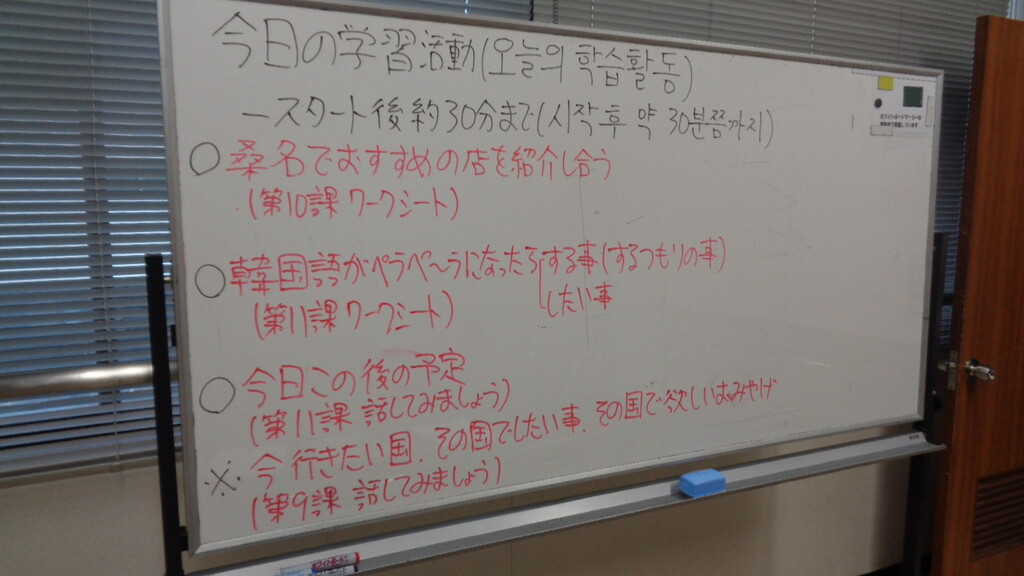 今日の学習活動(오늘의 학습활동)
ースタート後約30分まで(시작 후 약 30분쯤까지)
○桑名でおすすめの店を紹介し合う
(第10課 ワークシート)
○韓国語がペラペ〜ラになったらする事(するつもりの事)
したい事
(第11課 ワークシート)
○今日この後の予定
(第11課 話してみましょう)
※今行きたい国、その国でしたい事、その国で欲しいおみやげ
(第9課 話してみましょう)